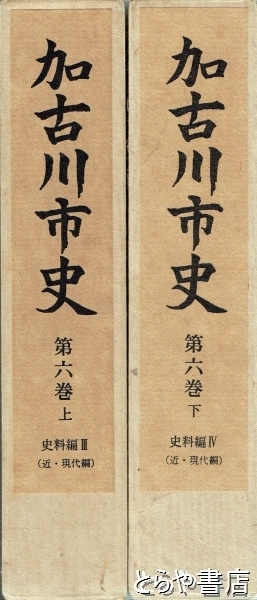 加古川市史
第六巻 上
史料編 Ⅲ
(近・現代編)
加古川市史
第六巻 下
史料編 Ⅳ
(近・現代編)
とらや書店